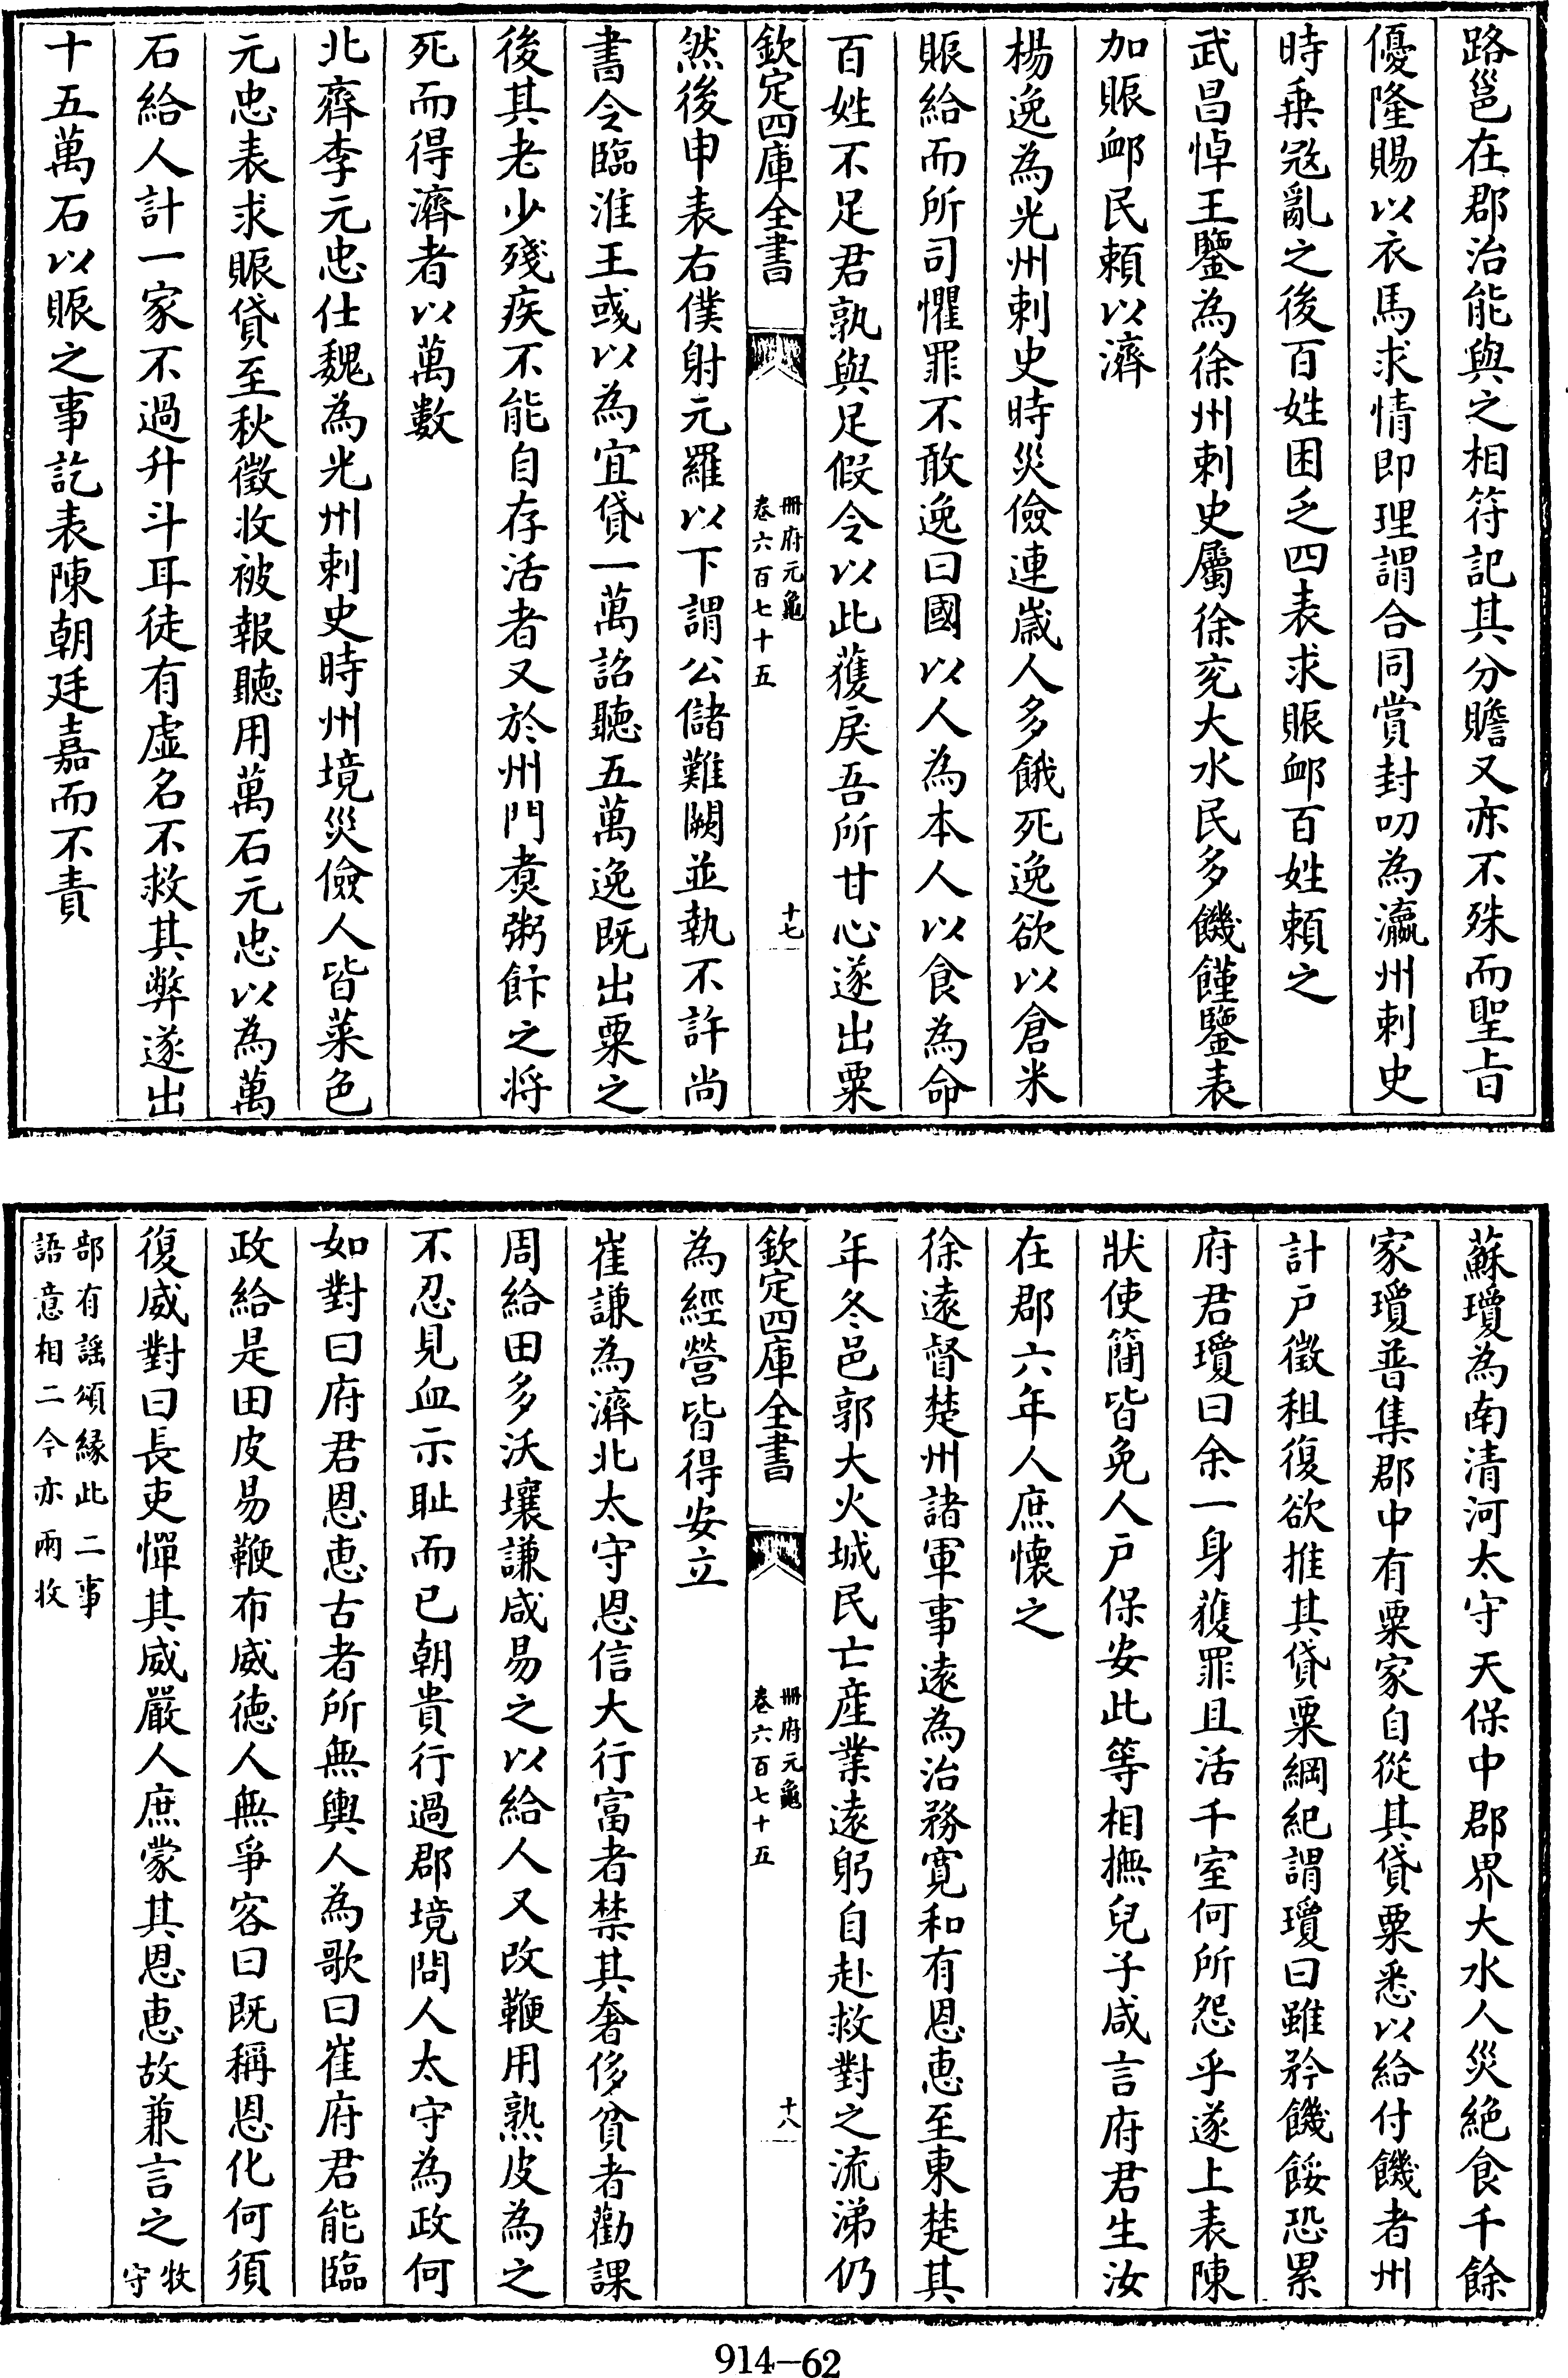 路邕在郡治能與之相符記其分贍又亦不殊而聖旨
優隆賜以衣馬求情即理謂合同賞封叨為瀛州刺史
時乗冦亂之後百姓困乏四表求賑䘏百姓賴之
武昌悼王鑒為徐州刺史屬徐兖大水民多饑饉鑒表
加賑䘏民賴以濟
楊逸為光州刺史時災儉連歲人多餓死逸欲以倉米
賑給而所司懼罪不敢逸曰國以人為本人以食為命
百姓不足君孰與足假令以此獲戾吾所甘心遂出粟
欽定四庫全書
冊府元龜
卷六百七十五
十七
然後申表右僕射元羅以下謂公儲難闕並執不許尚
書令臨淮王彧以為宜貸一萬詔聽五萬逸既出粟之
後其老少殘疾不能自存活者又於州門煑粥飰之将
死而得濟者以萬數
北齊李元忠仕魏為光州刺史時州境災儉人皆菜色
元忠表求賑貸至秋徵收被報聽用萬石元忠以為萬
石給人計一家不過升斗耳徒有虛名不救其弊遂出
十五萬石以賑之事訖表陳朝廷嘉而不責
蘇瓊為南清河太守天保中郡界大水人災絶食千餘
家瓊普集郡中有粟家自從其貸粟悉以給付饑者州
計户徵租復欲推其貸粟綱紀謂瓊曰雖矜饑餒恐累
府君瓊曰余一身獲罪且活千室何所怨乎遂上表陳
狀使簡皆免人户保安此等相撫兒子咸言府君生汝
在郡六年人庶懷之
徐遠督楚州諸軍事遠為治務寛和有恩惠至東楚其
年冬邑郭大火城民亡産業遠躬自赴救對之流涕仍
欽定四庫全書
冊府元龜
卷六百七十五
十八
為經營皆得安立
崔謙為濟北太守恩信大行富者禁其奢侈貧者勸課
周給田多沃壤謙咸易之以給人又改鞭用熟皮為之
不忍見血示耻而已朝貴行過郡境問人太守為政何
如對曰府君恩恵古者所無輿人為歌曰崔府君能臨
政給是田皮易鞭布威徳人無爭客曰既稱恩化何須
復威對曰長吏憚其威嚴人庶蒙其恩恵故兼言之牧守
部有謡頌縁此二事
語意相二今亦兩收
914-62